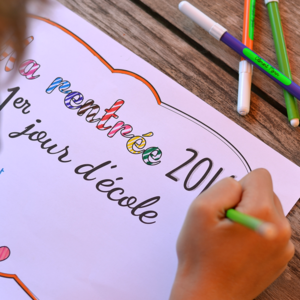 la rentrée
1er jour d'école